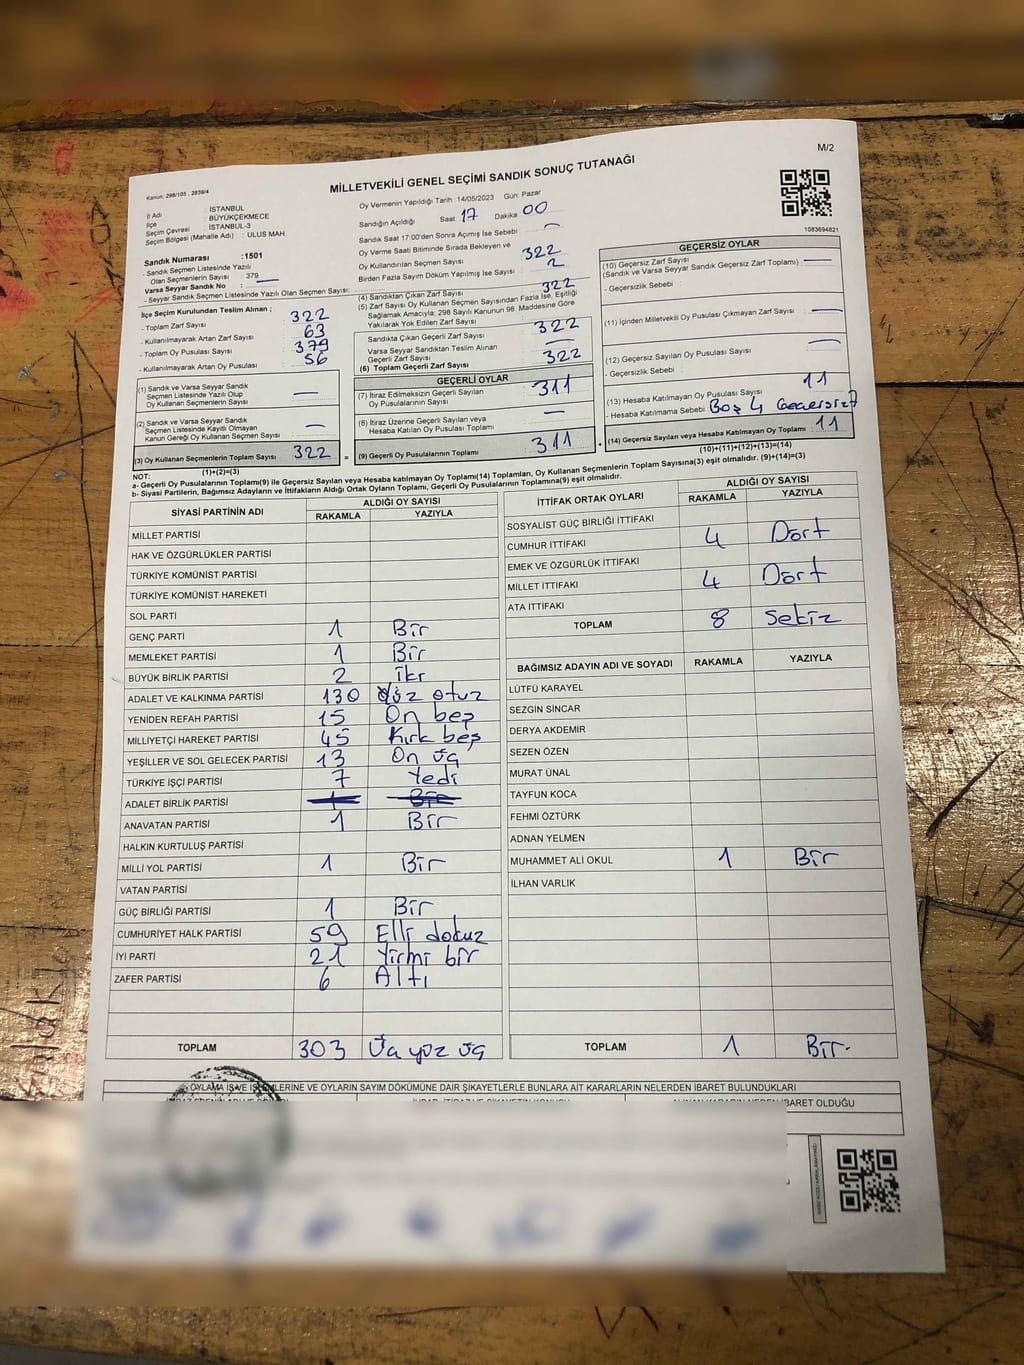 M/2
Kanun: 298/105 , 2839/4
MİLLETVEKİLİ GENEL SEÇİMİ SANDIK SONUÇ TUTANAĞI
1083694821
İl Adı : İSTANBUL
İlçe : BÜYÜKÇEKMECE
Seçim Çevresi : İSTANBUL-3
Seçim Bölgesi (Mahalle Adı) : ULUS MAH.
Sandık Numarası : 1501
- Sandık Seçmen Listesinde Yazılı
Olan Seçmenlerin Sayısı : 379
Varsa Seyyar Sandık No : —
- Seyyar Sandık Seçmen Listesinde Yazılı Olan Seçmen Sayısı:
Oy Vermenin Yapıldığı Tarih : 14/05/2023 Gün: Pazar
Sandığın Açıldığı Saat: 17 Dakika 00
Sandık Saat 17:00'den Sonra Açımış İse Sebebi : —
Oy Verme Saati Bitiminde Sırada Bekleyen ve
Oy Kullandırılan Seçmen Sayısı 322
Birden Fazla Sayım Döküm Yapılmış İse Sayısı 2
İlçe Seçim Kurulundan Teslim Alınan ;
- Toplam Zarf Sayısı 322
- Kullanılmayarak Artan Zarf Sayısı 63
- Toplam Oy Pusulası Sayısı 379
- Kullanılmayarak Artan Oy Pusulası 56
(1) Sandık ve Varsa Seyyar Sandık
Seçmen Listesinde Yazılı Olup
Oy Kullanan Seçmenlerin Sayısı —
(2) Sandık ve Varsa Seyyar Sandık
Seçmen Listesinde Kayıtlı Olmayan
Kanun Gereği Oy Kullanan Seçmen Sayısı —
(3) Oy Kullanan Seçmenlerin Toplam Sayısı 322
(1)+(2)=(3)
(4) Sandıktan Çıkan Zarf Sayısı 322
(5) Zarf Sayısı Oy Kullanan Seçmen Sayısından Fazla İse, Eşitliği
Sağlamak Amacıyla; 298 Sayılı Kanunun 98. Maddesine Göre
Yakılarak Yok Edilen Zarf Sayısı
Sandıkta Çıkan Geçerli Zarf Sayısı 322
Varsa Seyyar Sandıktan Teslim Alınan
Geçerli Zarf Sayısı —
(6) Toplam Geçerli Zarf Sayısı 322
GEÇERLİ OYLAR
(7) İtiraz Edilmeksizin Geçerli Sayılan
Oy Pusulalarının Sayısı 311
(8) İtiraz Üzerine Geçerli Sayılan veya
Hesaba Katılan Oy Pusulası Toplamı —
(9) Geçerli Oy Pusulalarının Toplamı 311
GEÇERSİZ OYLAR
(10) Geçersiz Zarf Sayısı —
(Sandık ve Varsa Seyyar Sandık Geçersiz Zarf Toplamı)
- Geçersizlik Sebebi :
(11) İçinden Milletvekili Oy Pusulası Çıkmayan Zarf Sayısı —
(12) Geçersiz Sayılan Oy Pusulası Sayısı —
- Geçersizlik Sebebi :
(13) Hesaba Katılmayan Oy Pusulası Sayısı 11
- Hesaba Katılmama Sebebi : Boş 4 Geçersiz 7
(14) Geçersiz Sayılan veya Hesaba Katılmayan Oy Toplamı : 11
(10)+(11)+(12)+(13)=(14)
NOT:
a- Geçerli Oy Pusulalarının Toplamı(9) ile Geçersiz Sayılan veya Hesaba katılmayan Oy Toplamı(14) Toplamları, Oy Kullanan Seçmenlerin Toplam Sayısına(3) eşit olmalıdır. (9)+(14)=(3)
b- Siyasi Partilerin, Bağımsız Adayların ve İttifakların Aldığı Ortak Oyların Toplamı, Geçerli Oy Pusulalarının Toplamına(9) eşit olmalıdır.
SİYASİ PARTİNİN ADI ALDIĞI OY SAYISI
RAKAMLA YAZIYLA
MİLLET PARTİSİ
HAK VE ÖZGÜRLÜKLER PARTİSİ
TÜRKİYE KOMÜNİST PARTİSİ
TÜRKİYE KOMÜNİST HAREKETİ
SOL PARTİ
GENÇ PARTİ 1 Bir
MEMLEKET PARTİSİ 1 Bir
BÜYÜK BİRLİK PARTİSİ 2 iki
ADALET VE KALKINMA PARTİSİ 130 Yüz otuz
YENİDEN REFAH PARTİSİ 15 On beş
MİLLİYETÇİ HAREKET PARTİSİ 45 Kırk beş
YEŞİLLER VE SOL GELECEK PARTİSİ 13 On üç
TÜRKİYE İŞÇİ PARTİSİ 7 Yedi
ADALET BİRLİK PARTİSİ 1 Bir
ANAVATAN PARTİSİ 1 Bir
HALKIN KURTULUŞ PARTİSİ
MİLLİ YOL PARTİSİ 1 Bir
VATAN PARTİSİ
GÜÇ BİRLİĞİ PARTİSİ 1 Bir
CUMHURİYET HALK PARTİSİ 59 Elli dokuz
İYİ PARTİ 21 Yirmi bir
ZAFER PARTİSİ 6 Altı
TOPLAM 303 Üç yüz üç
İTTİFAK ORTAK OYLARI ALDIĞI OY SAYISI
RAKAMLA YAZIYLA
SOSYALIST GÜÇ BİRLİĞİ İTTİFAKI
CUMHUR İTTİFAKI 4 Dört
EMEK VE ÖZGÜRLÜK İTTİFAKI
MİLLET İTTİFAKI 4 Dört
ATA İTTİFAKI
TOPLAM 8 Sekiz
BAĞIMSIZ ADAYIN ADI VE SOYADI RAKAMLA YAZIYLA
LÜTFÜ KARAYEL
SEZGİN SİNCAR
DERYA AKDEMİR
SEZEN ÖZEN
MURAT ÜNAL
TAYFUN KOCA
FEHMİ ÖZTÜRK
ADNAN YELMEN
MUHAMMET ALİ OKUL 1 Bir
İLHAN VARLIK
TOPLAM 1 Bir.
OYLAMA İŞ VE İŞLEMLERİNE VE OYLARIN SAYIM DÖKÜMÜNE DAİR ŞİKAYETLERLE BUNLARA AİT KARARLARIN NELERDEN İBARET BULUNDUKLARI
İBARET OLDUĞU